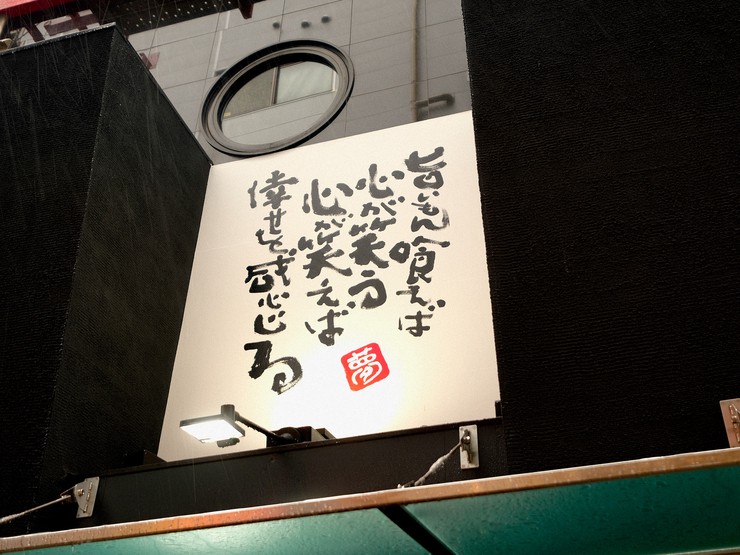 旨いもん喰えば
心が笑う
心が笑えば
倖せを感じる
夢